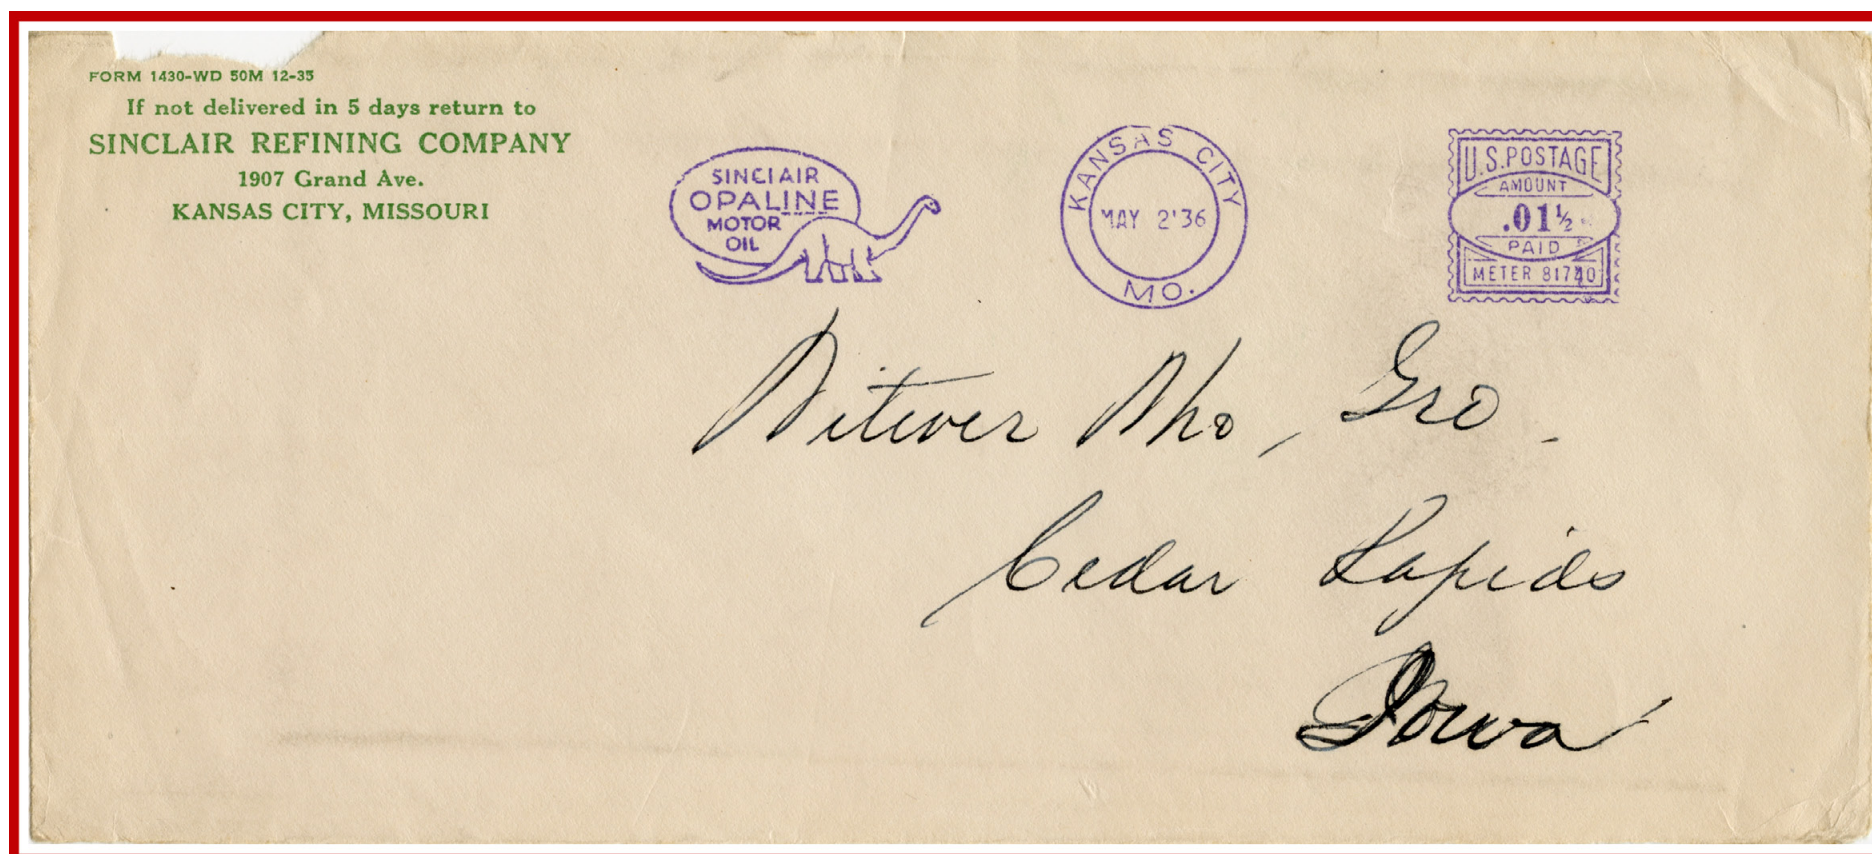 FORM 1430-WD 50M 12-35
If not delivered in 5 days return to
SINCLAIR REFINING COMPANY
1907 Grand Ave.
KANSAS CITY, MISSOURI
SINCLAIR
OPALINE
MOTOR
OIL
KANSAS CITY
MAY 2'36
MO.
U.S. POSTAGE
AMOUNT
.01½
PAID
METER
Who, Gro.
Cedar Rapids
Iowa